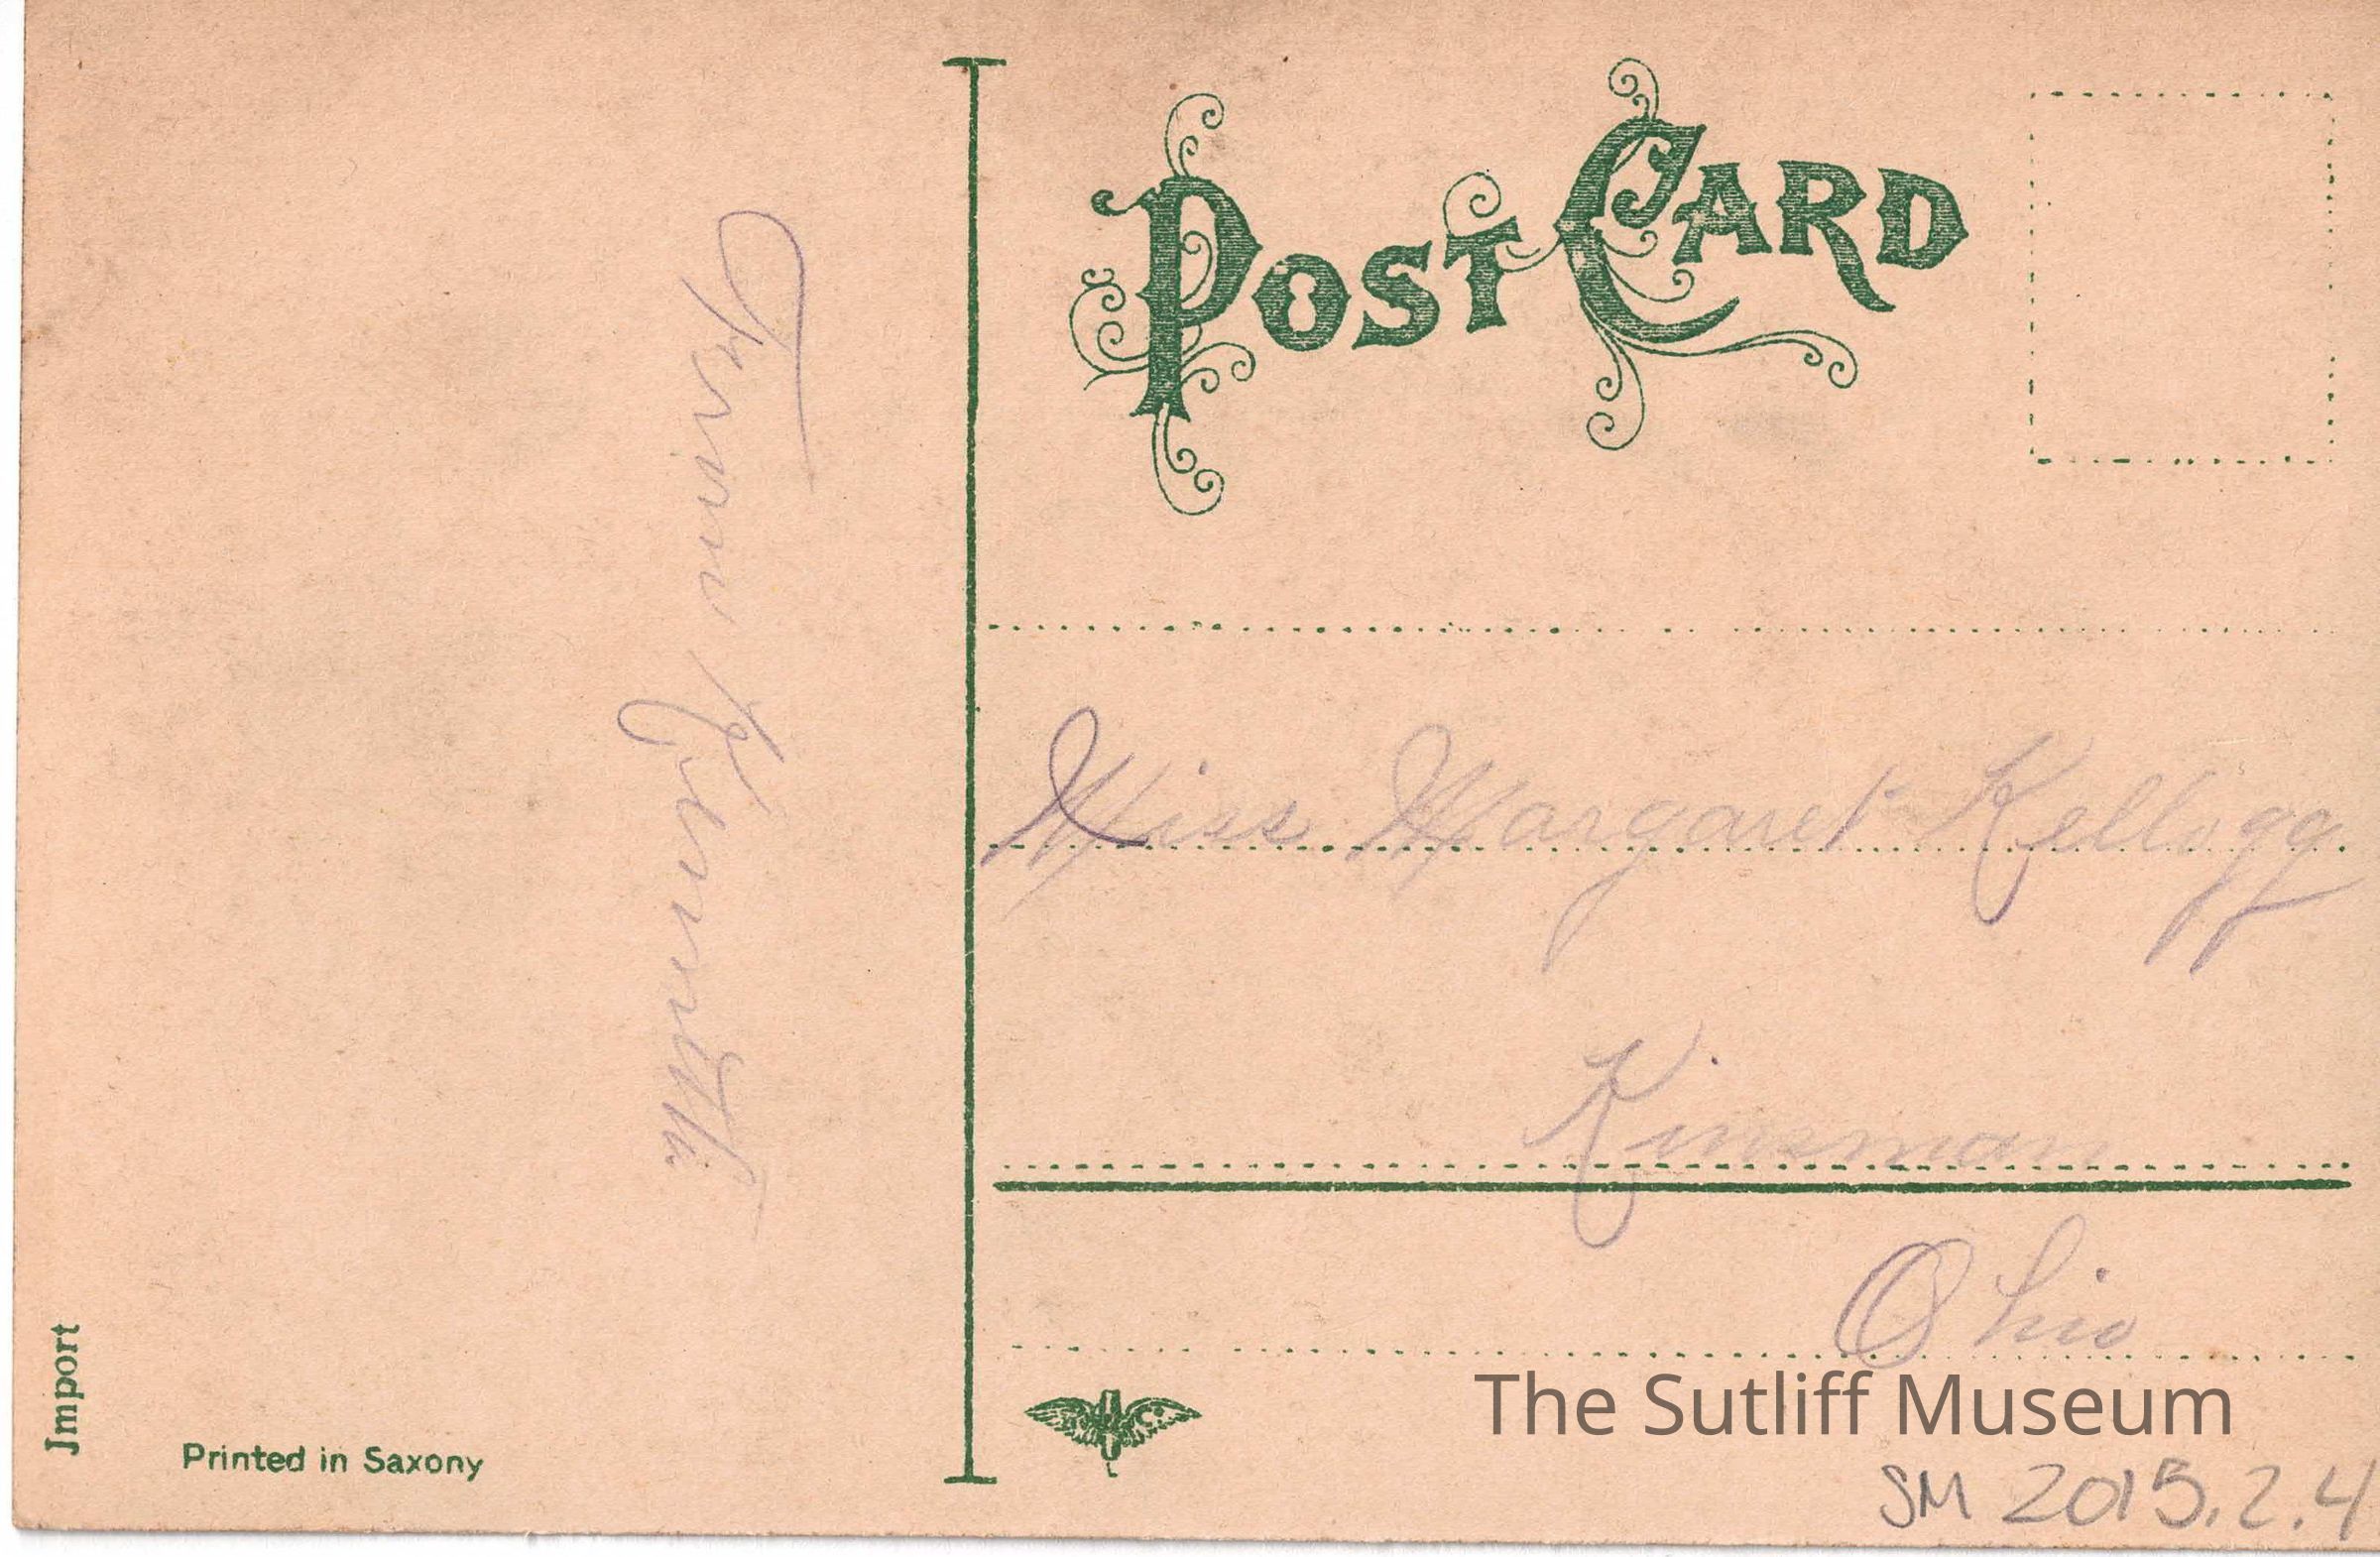 POST CARD
From Kenneth
Miss Margaret Kellogg
Kinsman
Ohio
Import
Printed in Saxony
The Sutliff Museum
SM 2015.2.4